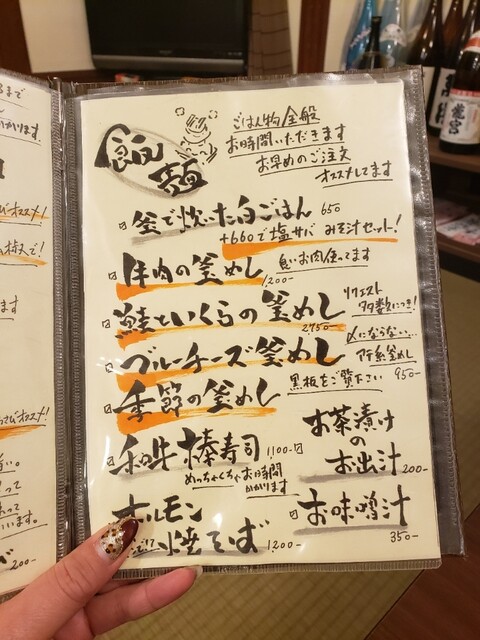 飯類
ごはん物全般
お時間いただきます
お早めのご注文
オススメしてます
釜で炊いた白ごはん 650
+660で塩サバ みそ汁セット!
牛肉の釜めし 1,200-
良いお肉使ってます
鮭といくらの釜めし 2,750-
リクエスト
多数につき!
ブルーチーズ釜めし 950-
〆にならない…
釜めし
季節の釜めし
黒板をご覧下さい
和牛棒寿司 1,100-
めっちゃくちゃお時間
かかります
お茶漬け
の
お出汁 200-
ホルモン
焼そば 1200-
お味噌汁 350-